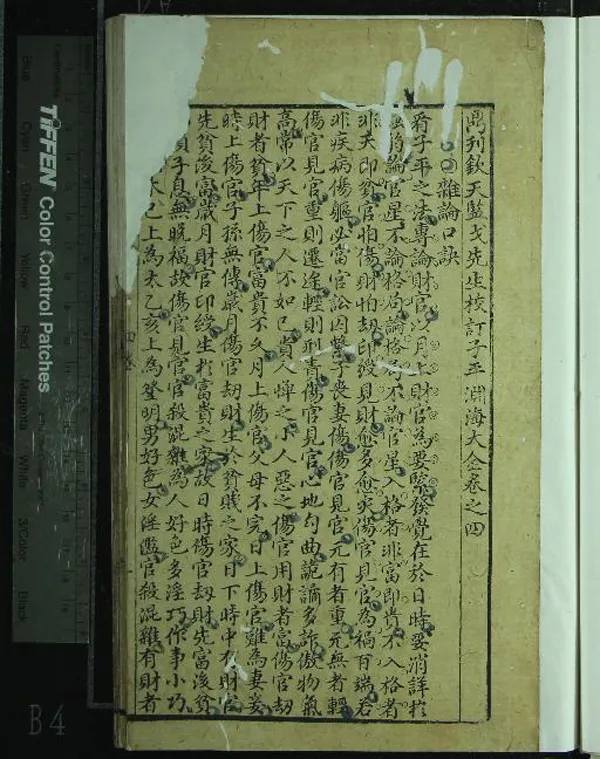 鼎刋欽天監戈先生校訂子平淵海大全卷之四
雜論口訣
看子平之法專論財官以月上財官為要𦂳發覺在於日時要消詳於
論官星不論格局論格局不論官星入格者非富即貴不入格者
非夭即貧官怕傷財怕刼印綬見財愈多愈灾傷官見官為禍百端若
非疾病傷軀必當官訟囚繫子喪妻傷傷官見官元有者重元無者輕
傷官見官重則遷途輕則刑責傷官見官心地勾曲詭譎多詐傲物氣
高常以天下之人不如己貴人憚之小人惡之傷官用財者富傷官刼
財者貧年上傷官富貴不久月上傷官父母不完日上傷官難為妻妾
時上傷官子孫無傳歲月傷官刼財生於貧賤之家日下時中有財官
先貧後富歲月財官印綬生於富貴之家故日時傷官刼財先富後貧
子息無晚福故傷官見官官殺混雜為人好色多淫巧作事小巧
己上為太乙亥上為登明男好色女淫濫官殺混雜有財者
四卷
TIFFEN Color Control Patches
Blue
Cyan
Green
Yellow
Red
Magenta
White
3/Color
Black
B4